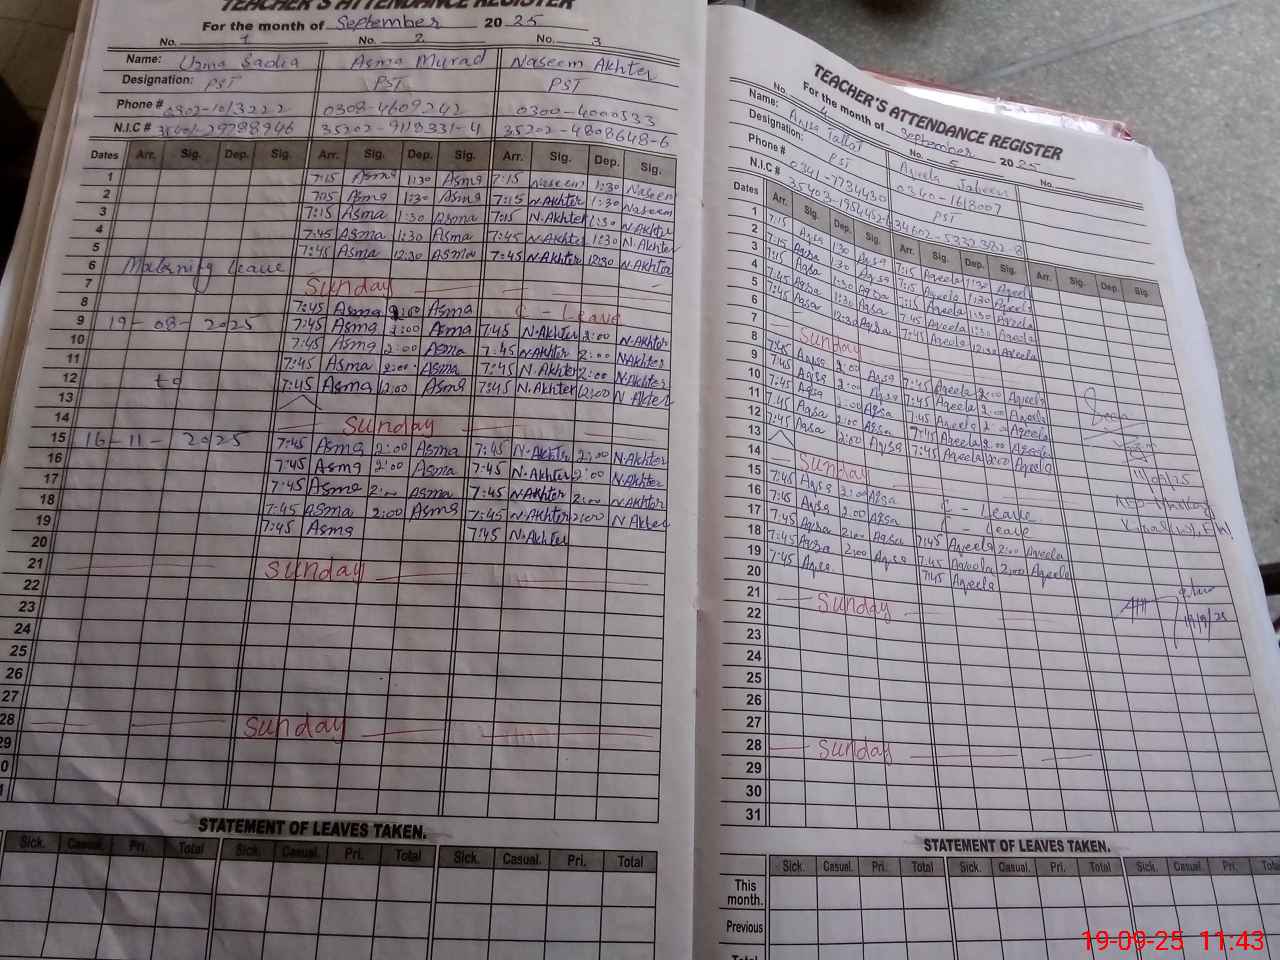 TEACHER'S ATTENDANCE REGISTER
For the month of September 2025
No. 1 No. 2 No. 3
Name: Uzma Sadia Asma Murad Naseem Akhter
Designation: PST PST PST
Phone # 0308-4609242 0300-4000533
N.I.C # 35202-4808648-6
Dates Arr. Sig. Dep. Sig. Arr. Sig. Dep. Sig. Arr. Sig. Dep. Sig.
1 7:15 Asma 1:30 Asma 7:15 Naseem 1:30 Naseem
2 7:15 N.Akhter 1:30 Naseem
3 7:15 Asma 1:30 Asma 7:15 N.Akhter 1:30 N.Akhter
4 7:45 Asma 1:30 Asma 7:45 N.Akhter 1:30 N.Akhter
5 7:45 Asma 12:30 Asma 7:45 N.Akhter 12:30 N.Akhter
6 Leave
7 Sunday
8 7:45 Asma 2:00 Asma C - Leave
9 19-08-2025 7:45 Asma 2:00 Asma 7:45 N.Akhter 2:00 N.Akhter
10 7:45 Asma 2:00 Asma 7:45 N.Akhter 2:00 N.Akhter
11 7:45 Asma 2:00 Asma 7:45 N.Akhter 2:00 N.Akhter
12 to 7:45 Asma 12:00 Asma 7:45 N.Akhter 12:00 N.Akhter
13
14 Sunday
15 16-11-2025 7:45 Asma 2:00 Asma 7:45 N.Akhter 2:00 N.Akhter
16 7:45 Asma 2:00 Asma 7:45 N.Akhter 2:00 N.Akhter
17 7:45 Asma 2:00 Asma 7:45 N.Akhter 2:00 N.Akhter
18 7:45 Asma 2:00 Asma 7:45 N.Akhter 2:00 N.Akhter
19 7:45 Asma 7:45 N.Akhter
20
21 Sunday
22
23
24
25
26
27
28 Sunday
29
STATEMENT OF LEAVES TAKEN.
Sick. Casual. Pri. Total Sick. Casual. Pri. Total Sick. Casual. Pri. Total
TEACHER'S ATTENDANCE REGISTER
For the month of September 2025
No. 4 No. 5 No.
Name: Aqsa Tallat Aqeela Jabeen
Designation: PST 0340-1618007
Phone # 0341-7734430 PST
N.I.C # 34602-5332382-8
Dates Arr. Sig. Dep. Sig. Arr. Sig. Dep. Sig. Arr. Sig. Dep. Sig.
1 7:15 Aqsa 1:30 Aqsa 7:15 Aqeela 1:30 Aqeela
2 7:15 Aqsa 1:30 Aqsa 7:15 Aqeela 1:30 Aqeela
3 7:15 Aqsa 1:30 Aqsa 7:15 Aqeela 1:30 Aqeela
4 7:45 Aqsa 1:30 Aqsa 7:45 Aqeela 1:30 Aqeela
5 7:45 Aqsa 12:30 Aqsa 7:45 Aqeela 12:30 Aqeela
6
7 Sunday
8 7:45 Aqsa 2:00 Aqsa 7:45 Aqeela 2:00 Aqeela
9 7:45 Aqsa 2:00 Aqsa 7:45 Aqeela 2:00 Aqeela
10 7:45 Aqsa 2:00 Aqsa 7:45 Aqeela 2:00 Aqeela
11 7:45 Aqsa 2:00 Aqsa 7:45 Aqeela 2:00 Aqeela
12 7:45 Aqsa Aqsa 7:45 Aqeela Aqeela
13
14 Sunday
15 7:45 Aqsa 2:00 Aqsa C - Leave
16 7:45 Aqsa 2:00 Aqsa Leave
17 7:45 Aqsa 2:00 Aqsa 7:45 Aqeela 2:00 Aqeela
18 7:45 Aqsa 2:00 Aqsa 7:45 Aqeela 2:00 Aqeela
19 7:45 Aqsa 7:45 Aqeela
20
21 Sunday
22
23
24
25
26
27
28 Sunday
29
30
31
STATEMENT OF LEAVES TAKEN.
Sick. Casual. Pri. Total Sick. Casual. Pri. Total Sick. Casual. Pri.
This month.
Previous
19-09-25 11:43